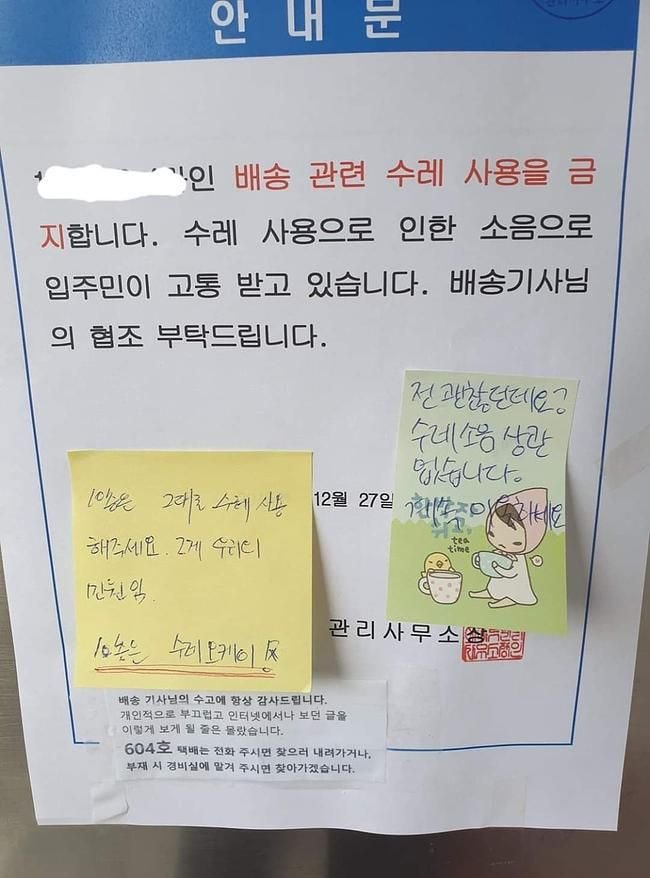 안 내 문
인 배송 관련 수레 사용을 금
지합니다. 수레 사용으로 인한 소음으로
입주민이 고통 받고 있습니다. 배송기사님
의 협조 부탁드립니다.
전 괜찮던데요?
수레소음 상관
없습니다.
계속 이용하세요
tea
time
12월 27일
그대로 수레 사용
해주세요. 그게 우리의
민원임.
수레 오케이
관리사무소장
배송 기사님의 수고에 항상 감사드립니다.
개인적으로 부끄럽고 인터넷에서나 보던 글을
이렇게 보게 될 줄은 몰랐습니다.
604호 택배는 전화 주시면 찾으러 내려가거나,
부재 시 경비실에 맡겨 주시면 찾아가겠습니다.